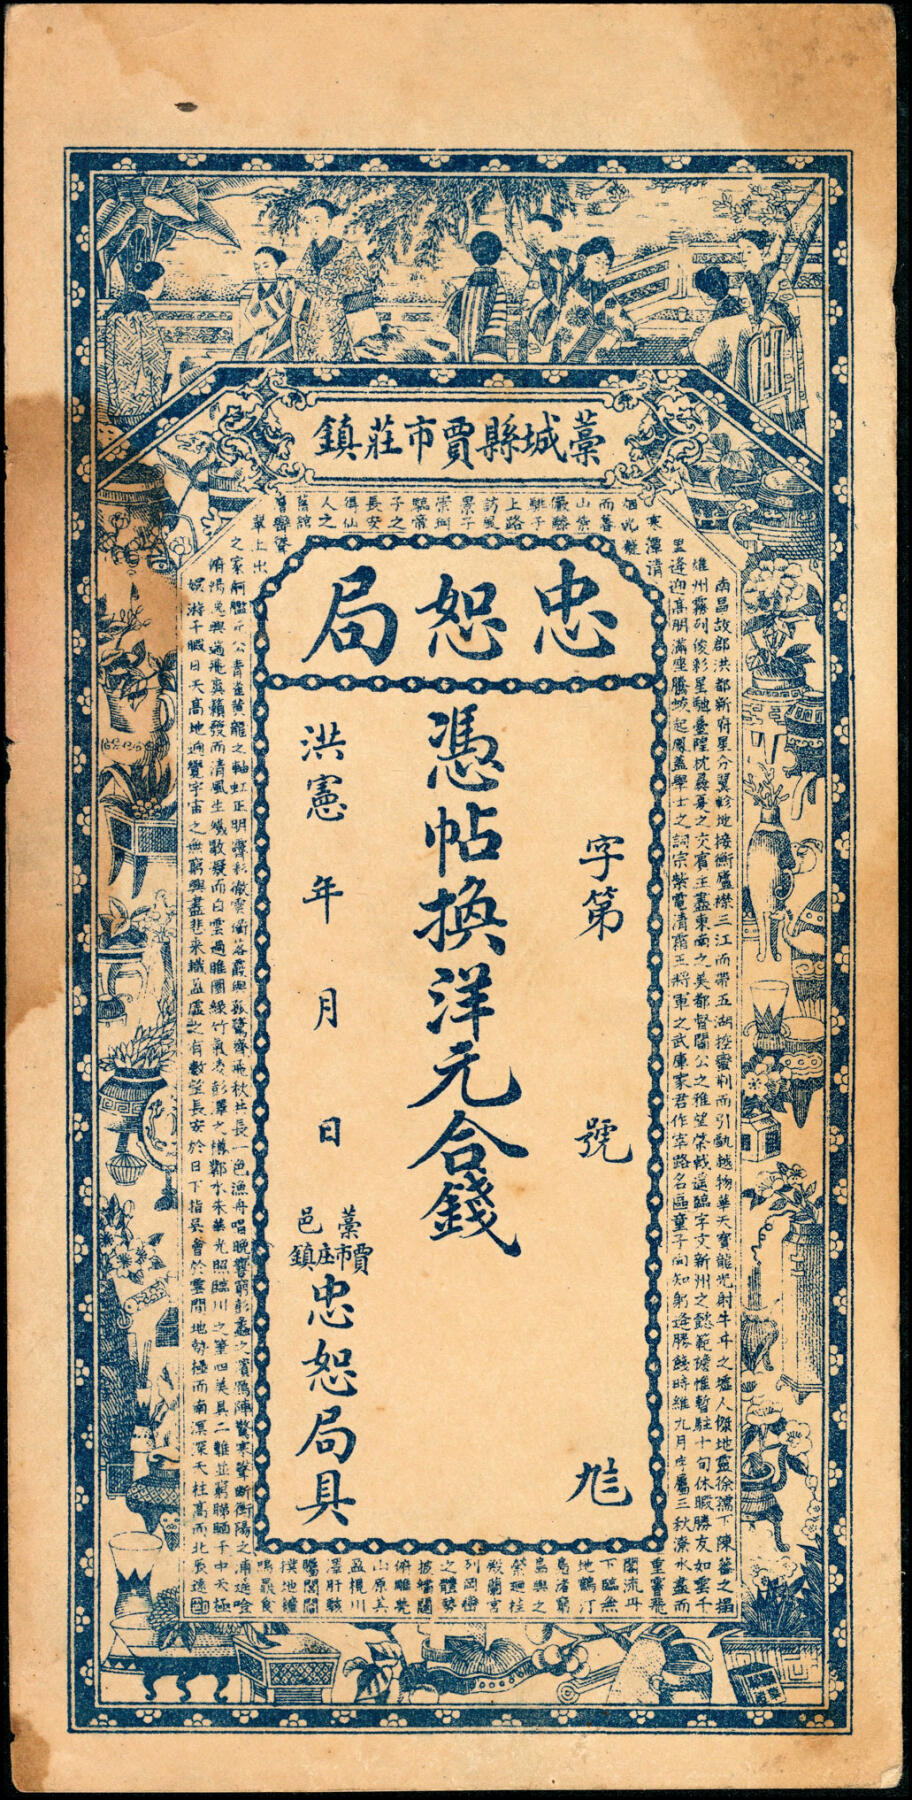 藁城縣賈市莊鎮
忠恕局
字第　號
憑帖換洋元合錢
洪憲　年　月　日
藁邑賈市庄鎮忠恕局具
南昌故郡洪都新府星分翼軫地接衡廬襟三江而帶五湖控蠻荊而引甌越物華天寶龍光射牛斗之墟人傑地靈徐孺下陳蕃之榻
雄州霧列俊彩星馳臺隍枕夷夏之交賓主盡東南之美都督閻公之雅望棨戟遙臨宇文新州之懿範襜帷暫駐十旬休暇勝友如雲千
里逢迎高朋滿座騰蛟起鳳孟學士之詞宗紫電清霜王將軍之武庫家君作宰路名區童子何知躬逢勝餞時維九月序屬三秋潦水盡而
寒潭清
烟光凝
而暮
山紫
儼驂
騑于
上路
訪風
景于
崇阿
臨帝
子之
長安
得仙
人之
舊館
層巒聳
翠上出
重霄飛
閣流丹
下臨無
地鶴汀
鳧渚窮
島嶼之
縈迴桂
殿蘭宮
列岡巒
之體勢
披繡闥
俯雕甍
山原其
盈視川
澤盱駭
矚閭閻
撲地鐘
鳴鼎食
之家舸艦青雀黃龍之軸虹正明霽彩徹雲衢落霞與孤鶩齊飛秋共長一色漁舟唱晚響窮彭蠡之濱鴈陣驚寒聲斷衡陽之浦遙吟
俯暢逸興遄飛爽籟發而清風生纖歌凝而白雲遏睢園綠竹氣凌彭澤之樽鄴水朱華光照臨川之筆四美具二難並窮睇眄于中天極
娛游于暇日天高地迥覺宇宙之無窮興盡悲來識盈虛之有數望長安於日下指吳會於雲間地勢極而南溟深天柱高而北辰遠